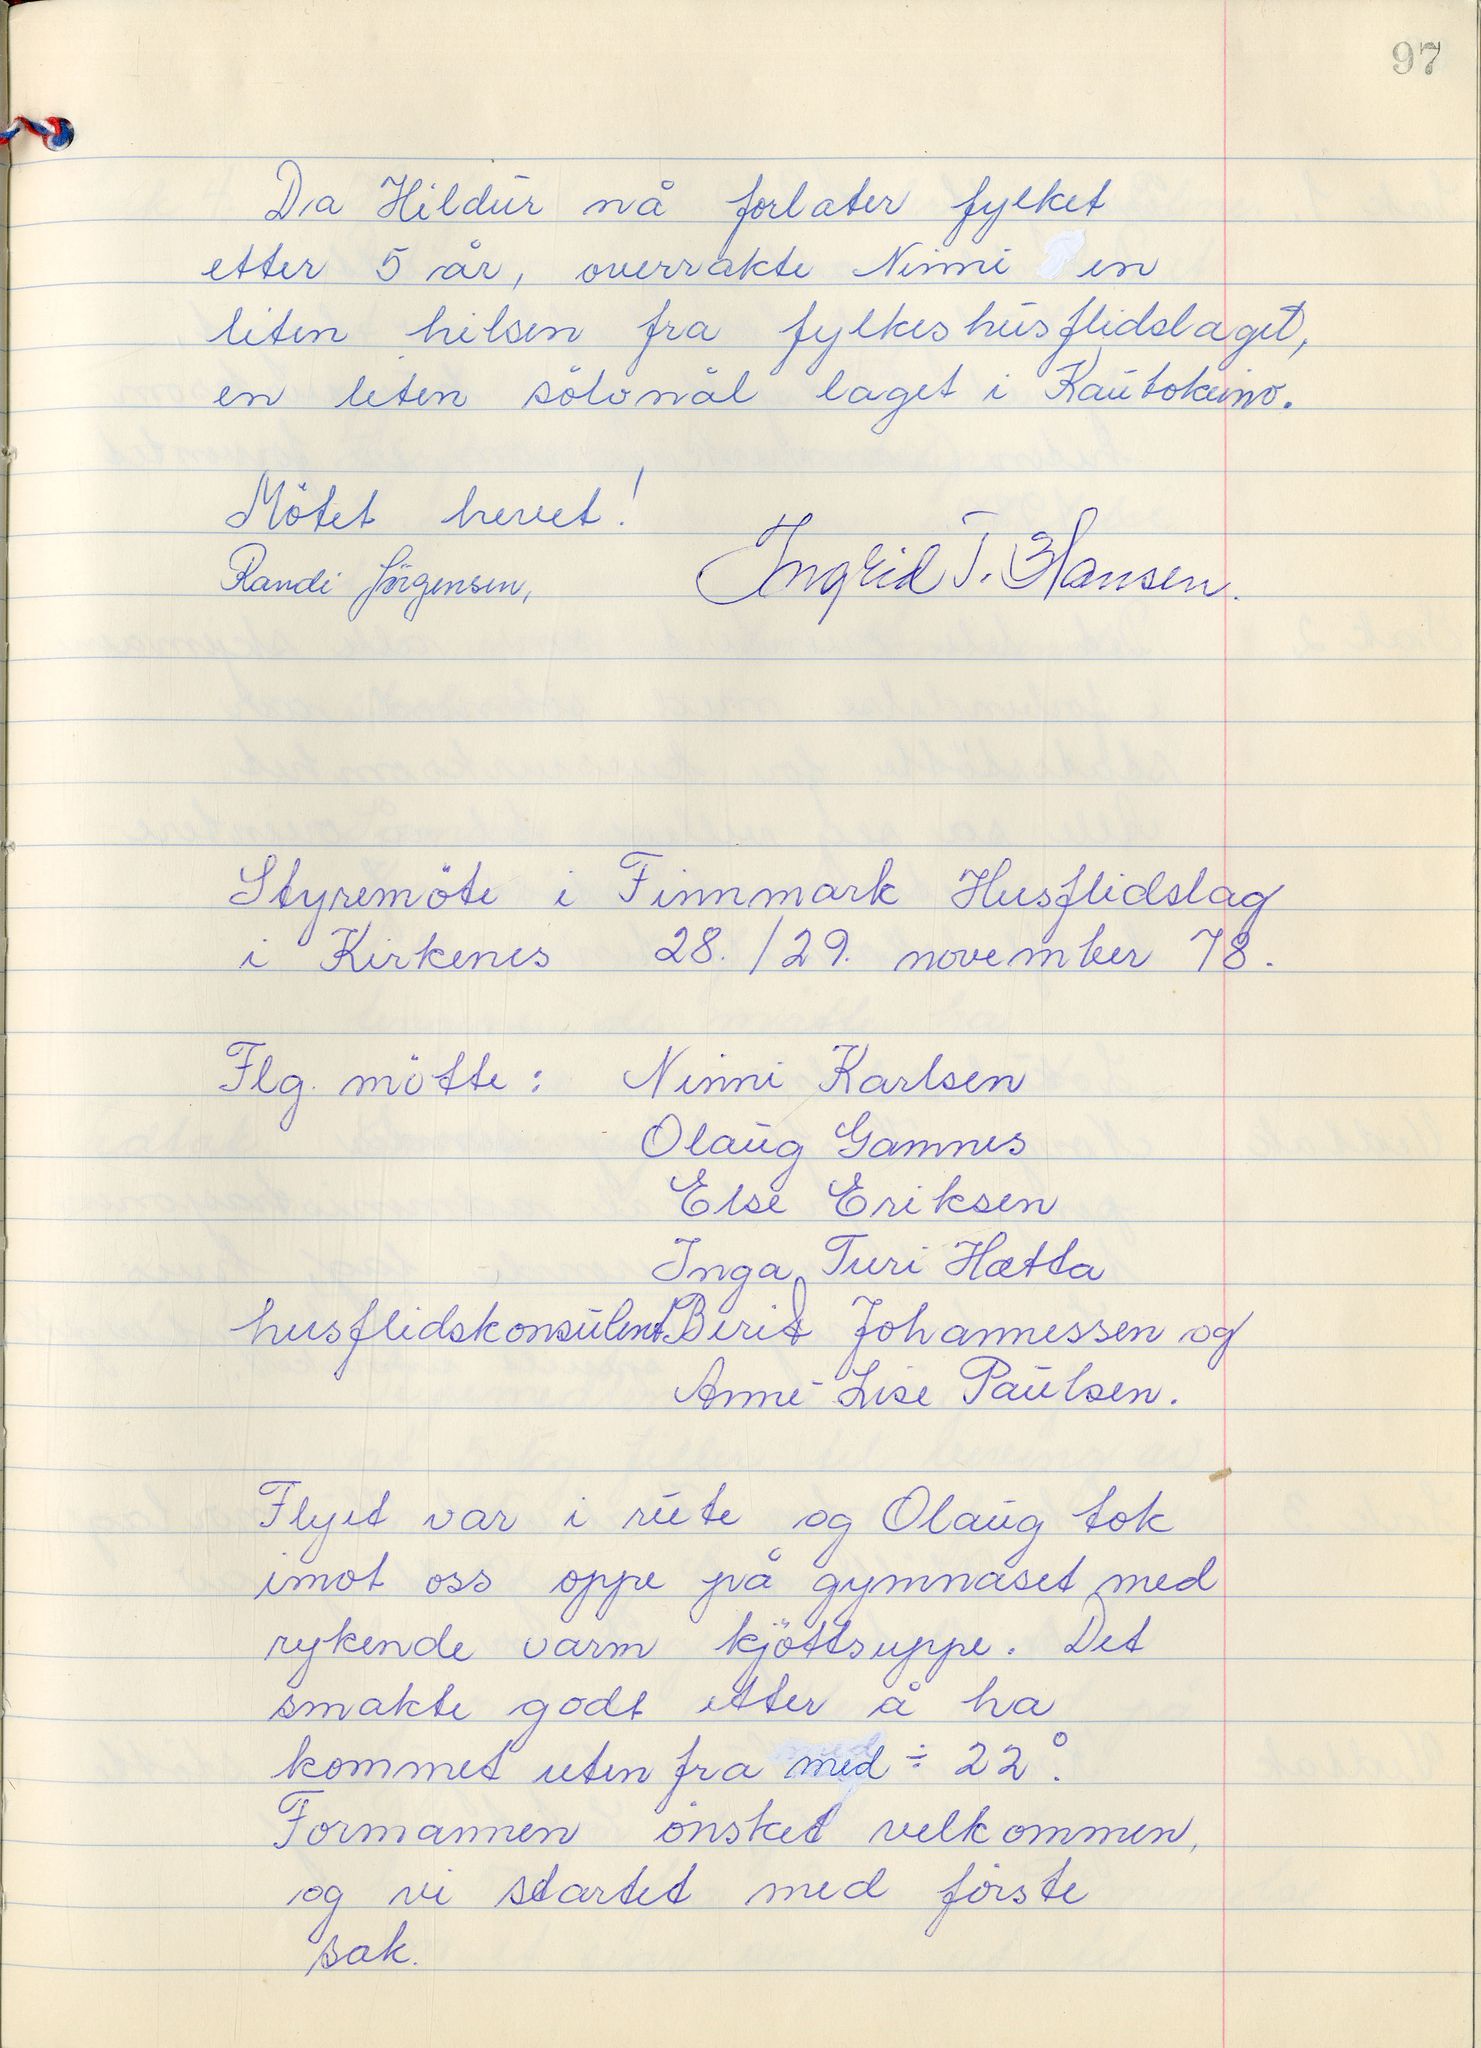 97
Da Hildur nå forlater fylket
etter 5 år, overrakte Ninni en
liten hilsen fra fylkeshusflidslaget,
en liten sölvnål laget i Kautokeino.
Mötet hevet!
Randi Jörgensen, Ingrid T. Hansen.
Styremöte i Finnmark Husflidslag
i Kirkenes 28./29. november 78.
Flg. mötte: Ninni Karlsen
Olaug Gamnes
Else Eriksen
Inga Turi Hætta
husflidskonsulent Berit Johannessen og
Anne-Lise Paulsen.
Flyet var i rute og Olaug tok
imot oss oppe på gymnaset med
rykende varm kjöttsuppe. Det
smakte godt etter å ha
kommet uten fra med ÷ 22°.
Formannen önsket velkommen,
og vi startet med förste
sak.